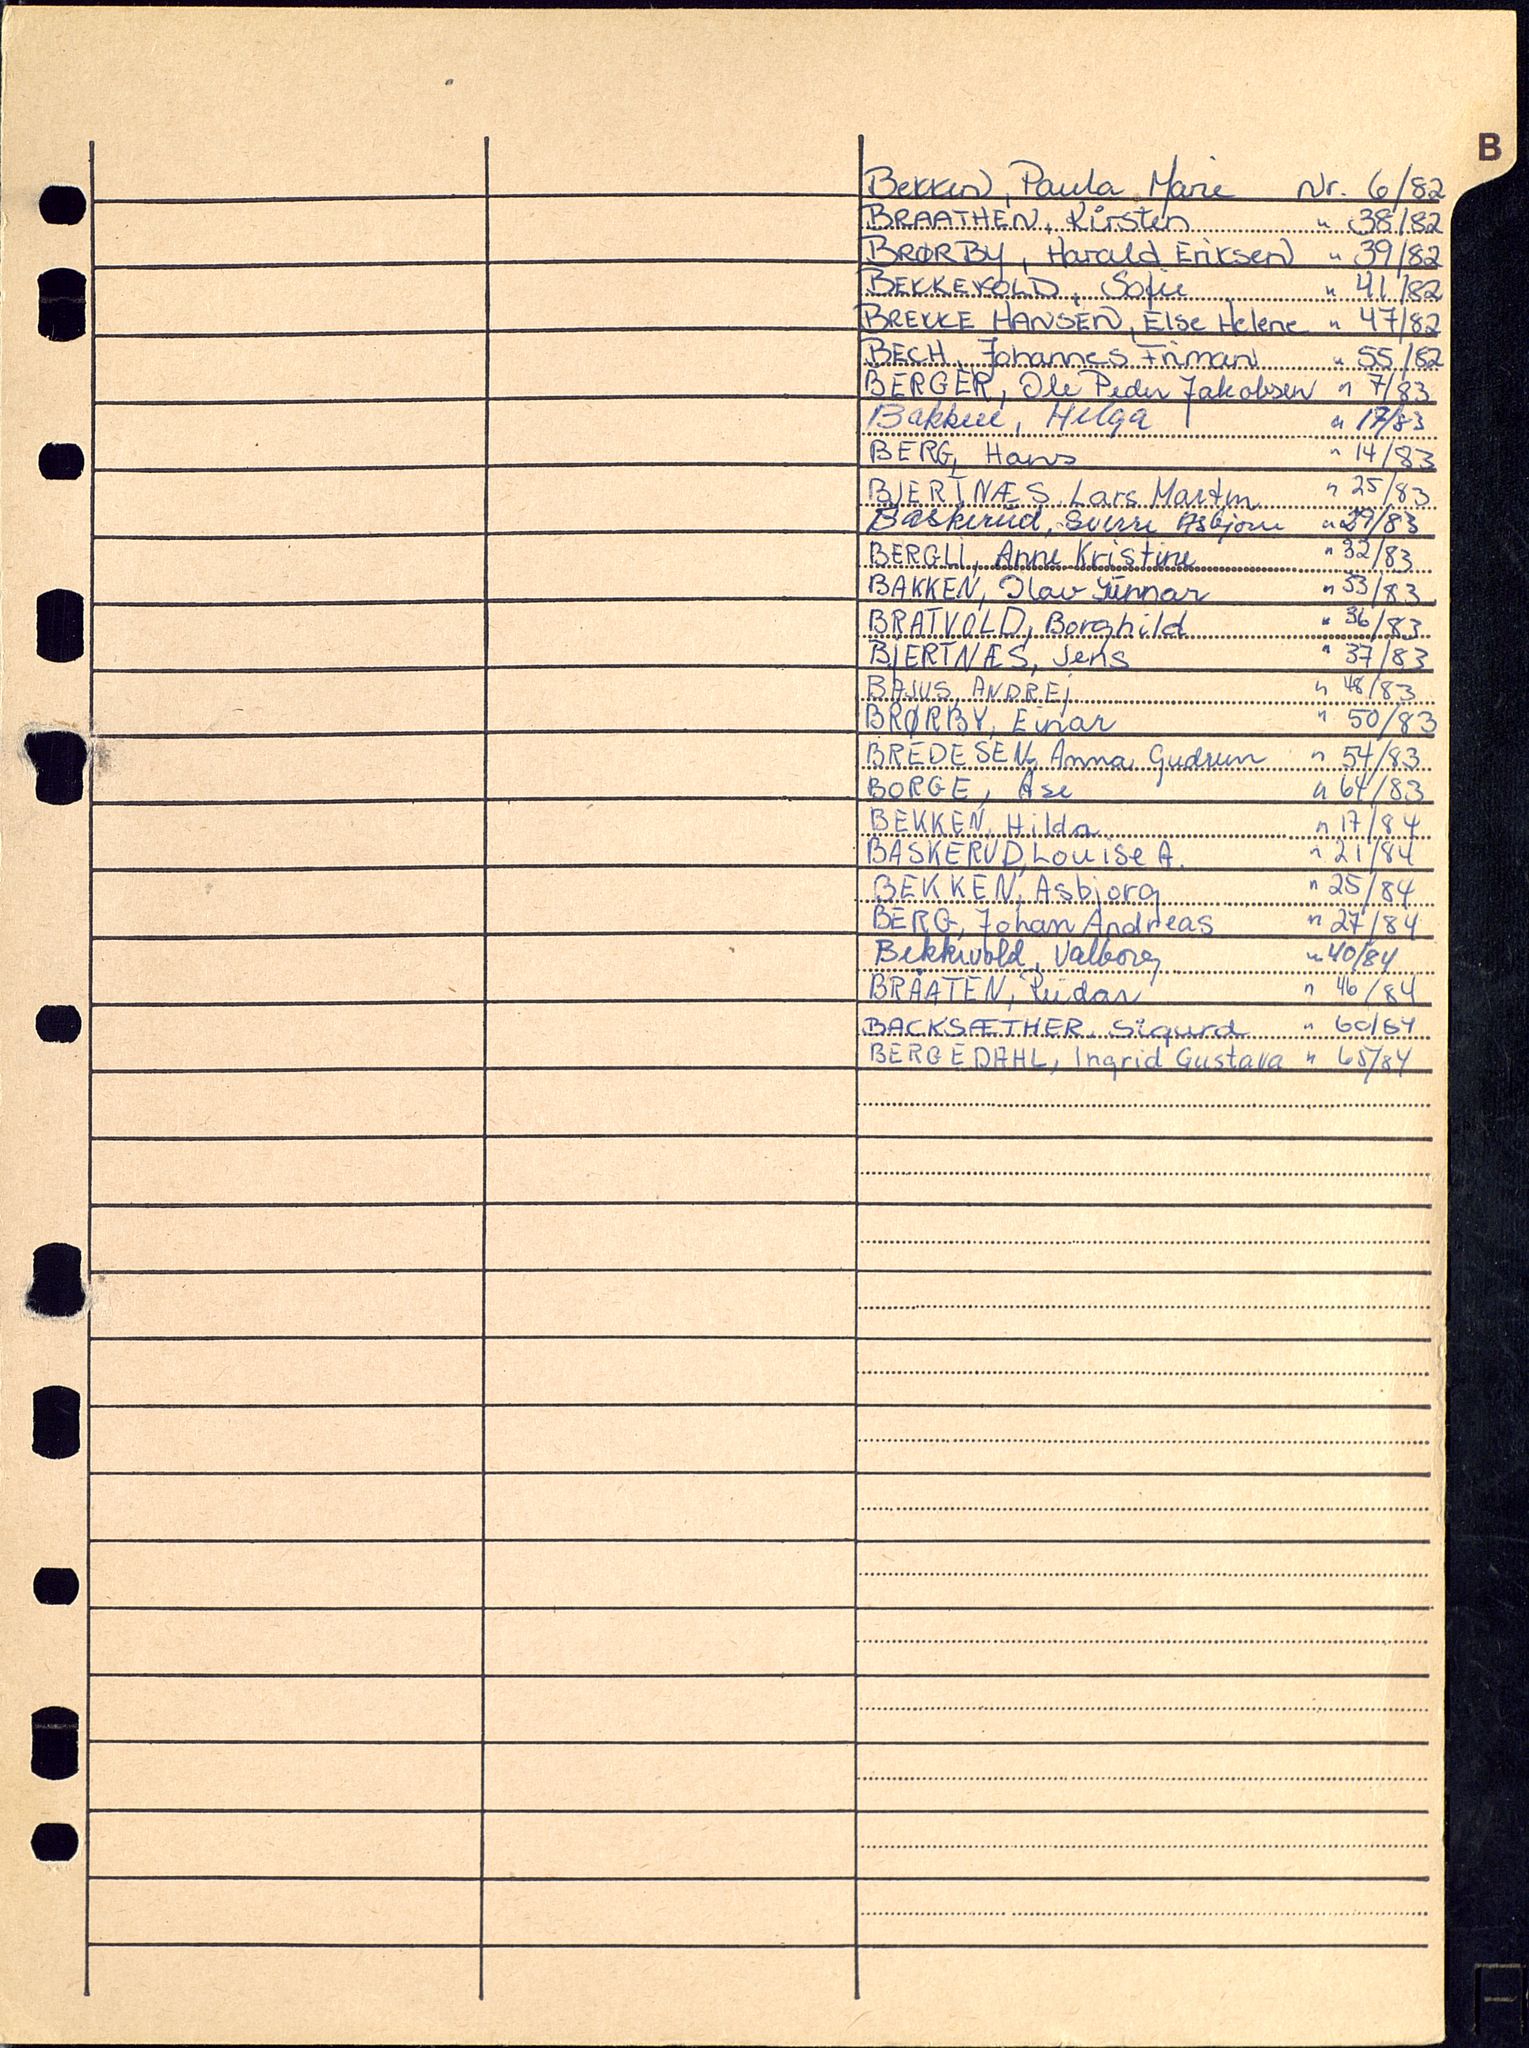 B
Bekken, Paula Marie Nr. 6/82
BRAATHEN, Kirsten " 38/82
BRØRBY, Harald Eriksen " 39/82
BEKKEVOLD, Sofie " 41/82
BREKKE HANSEN, Else Helene " 47/82
BECH, Johannes Friman " 55/82
BERGER, Ole Peder Jakobsen " 7/83
Bakken, Helga " 17/83
BERG, Hans " 14/83
BJERTNÆS, Lars Martin " 25/83
Baskerud, Sverre Asbjørn " 29/83
BERGLI, Anne Kristine " 32/83
BAKKEN, Olav Gunnar " 33/83
BRATVOLD, Borghild " 36/83
BJERTNÆS, Jens " 37/83
BAJUS, ANDREJ " 48/83
BRØRBY, Einar " 50/83
BREDESEN, Anna Gudrun " 54/83
BORGE, Åse " 64/83
BEKKEN, Hilda " 17/84
BASKERUD, Louise A. " 21/84
BEKKEN, Asbjørg " 25/84
BERG, Johan Andreas " 27/84
Bekkevold, Valborg " 40/84
BRÅATEN, Reidar " 46/84
BACKSÆTHER, Sigurd " 60/84
BERGEDAHL, Ingrid Gustava " 65/84